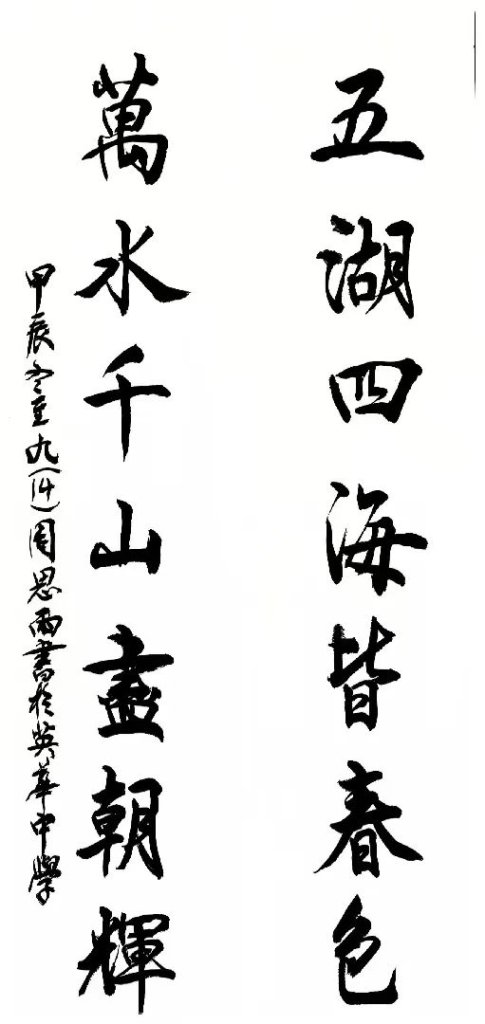 五湖四海皆春色
萬水千山盡朝輝
甲辰冬至九(14)周思雨書於英華中學